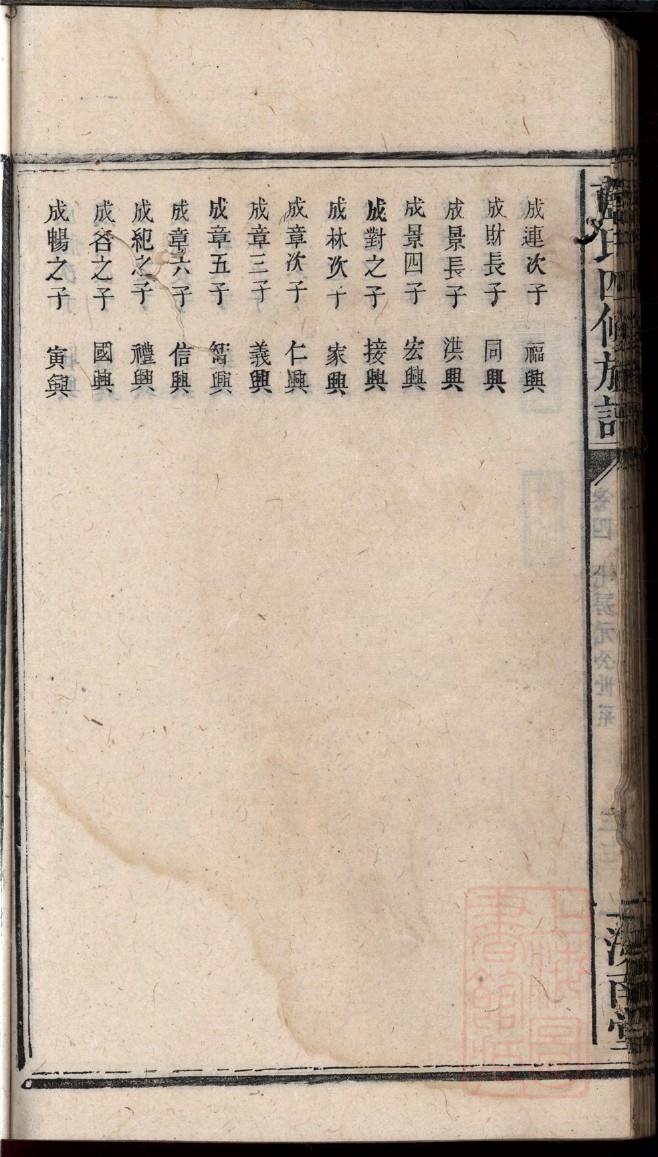 成連次子 福興
成財長子 同興
成景長子 洪興
成景四子 宏興
成對之子 接興
成林次子 家興
成章次子 仁興
成章三子 義興
成章五子 興
成章六子 信興
成紀之子 禮興
成谷之子 國興
成暢之子 寅興
氏四修族譜
卷四
元公世系
南堂